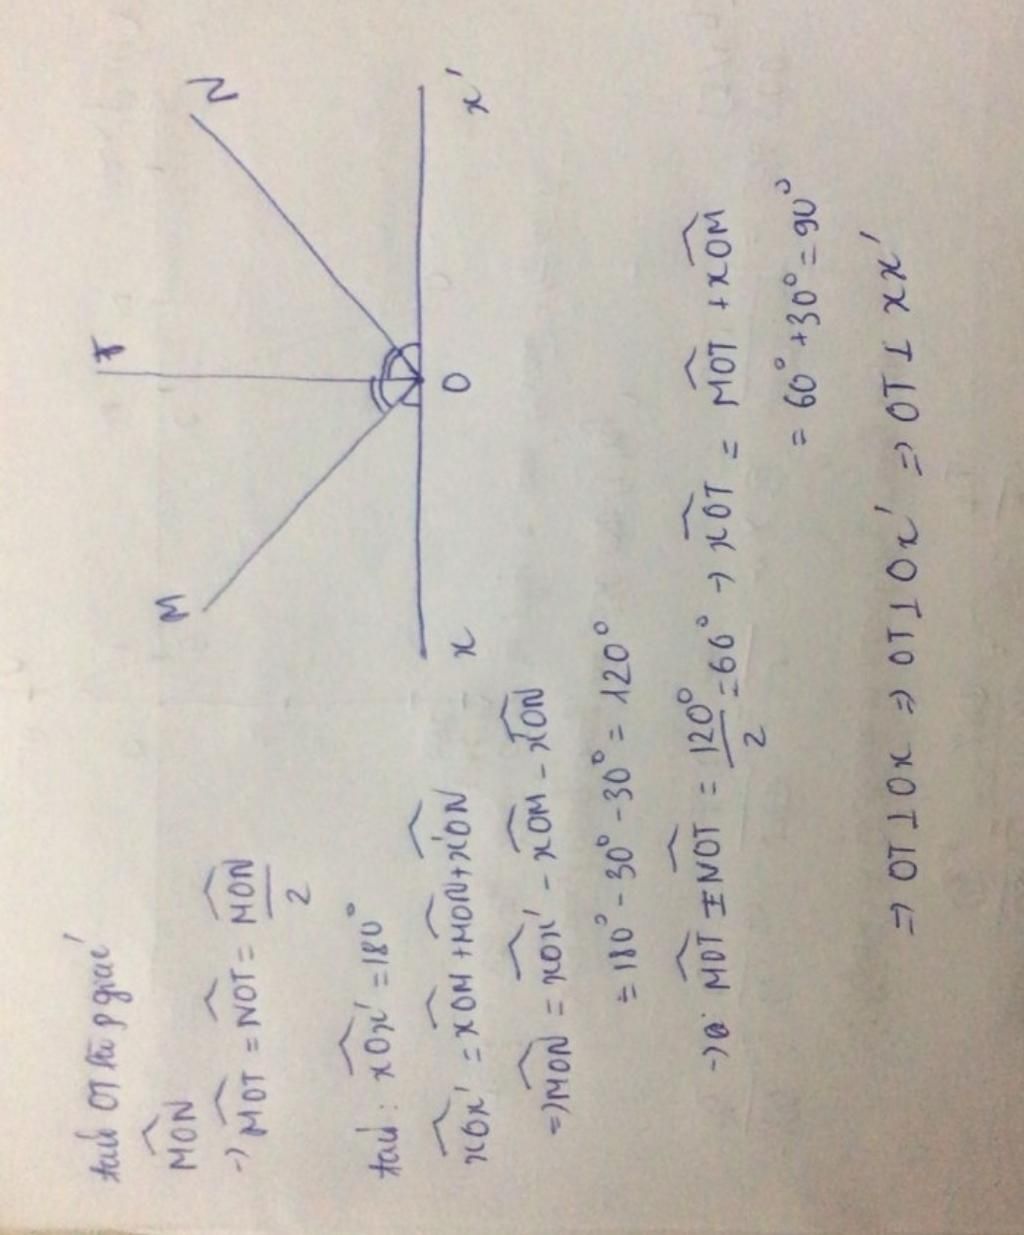 ta có OT là p giác
M̂ON
→ M̂OT = N̂OT = M̂ON/2
ta có : x̂Ox' = 180°
x̂Ox' = x̂OM + M̂ON + x̂'ON
⇒ M̂ON = x̂Ox' - x̂OM - x̂'ON
= 180° - 30° - 30° = 120°
→ M̂OT = N̂OT = 120°/2 = 60° → x̂OT = M̂OT + x̂OM
= 60° + 30° = 90°
⇒ OT ⊥ Ox ⇒ OT ⊥ Ox' ⇒ OT ⊥ xx'
M
T
N
x
O
x'